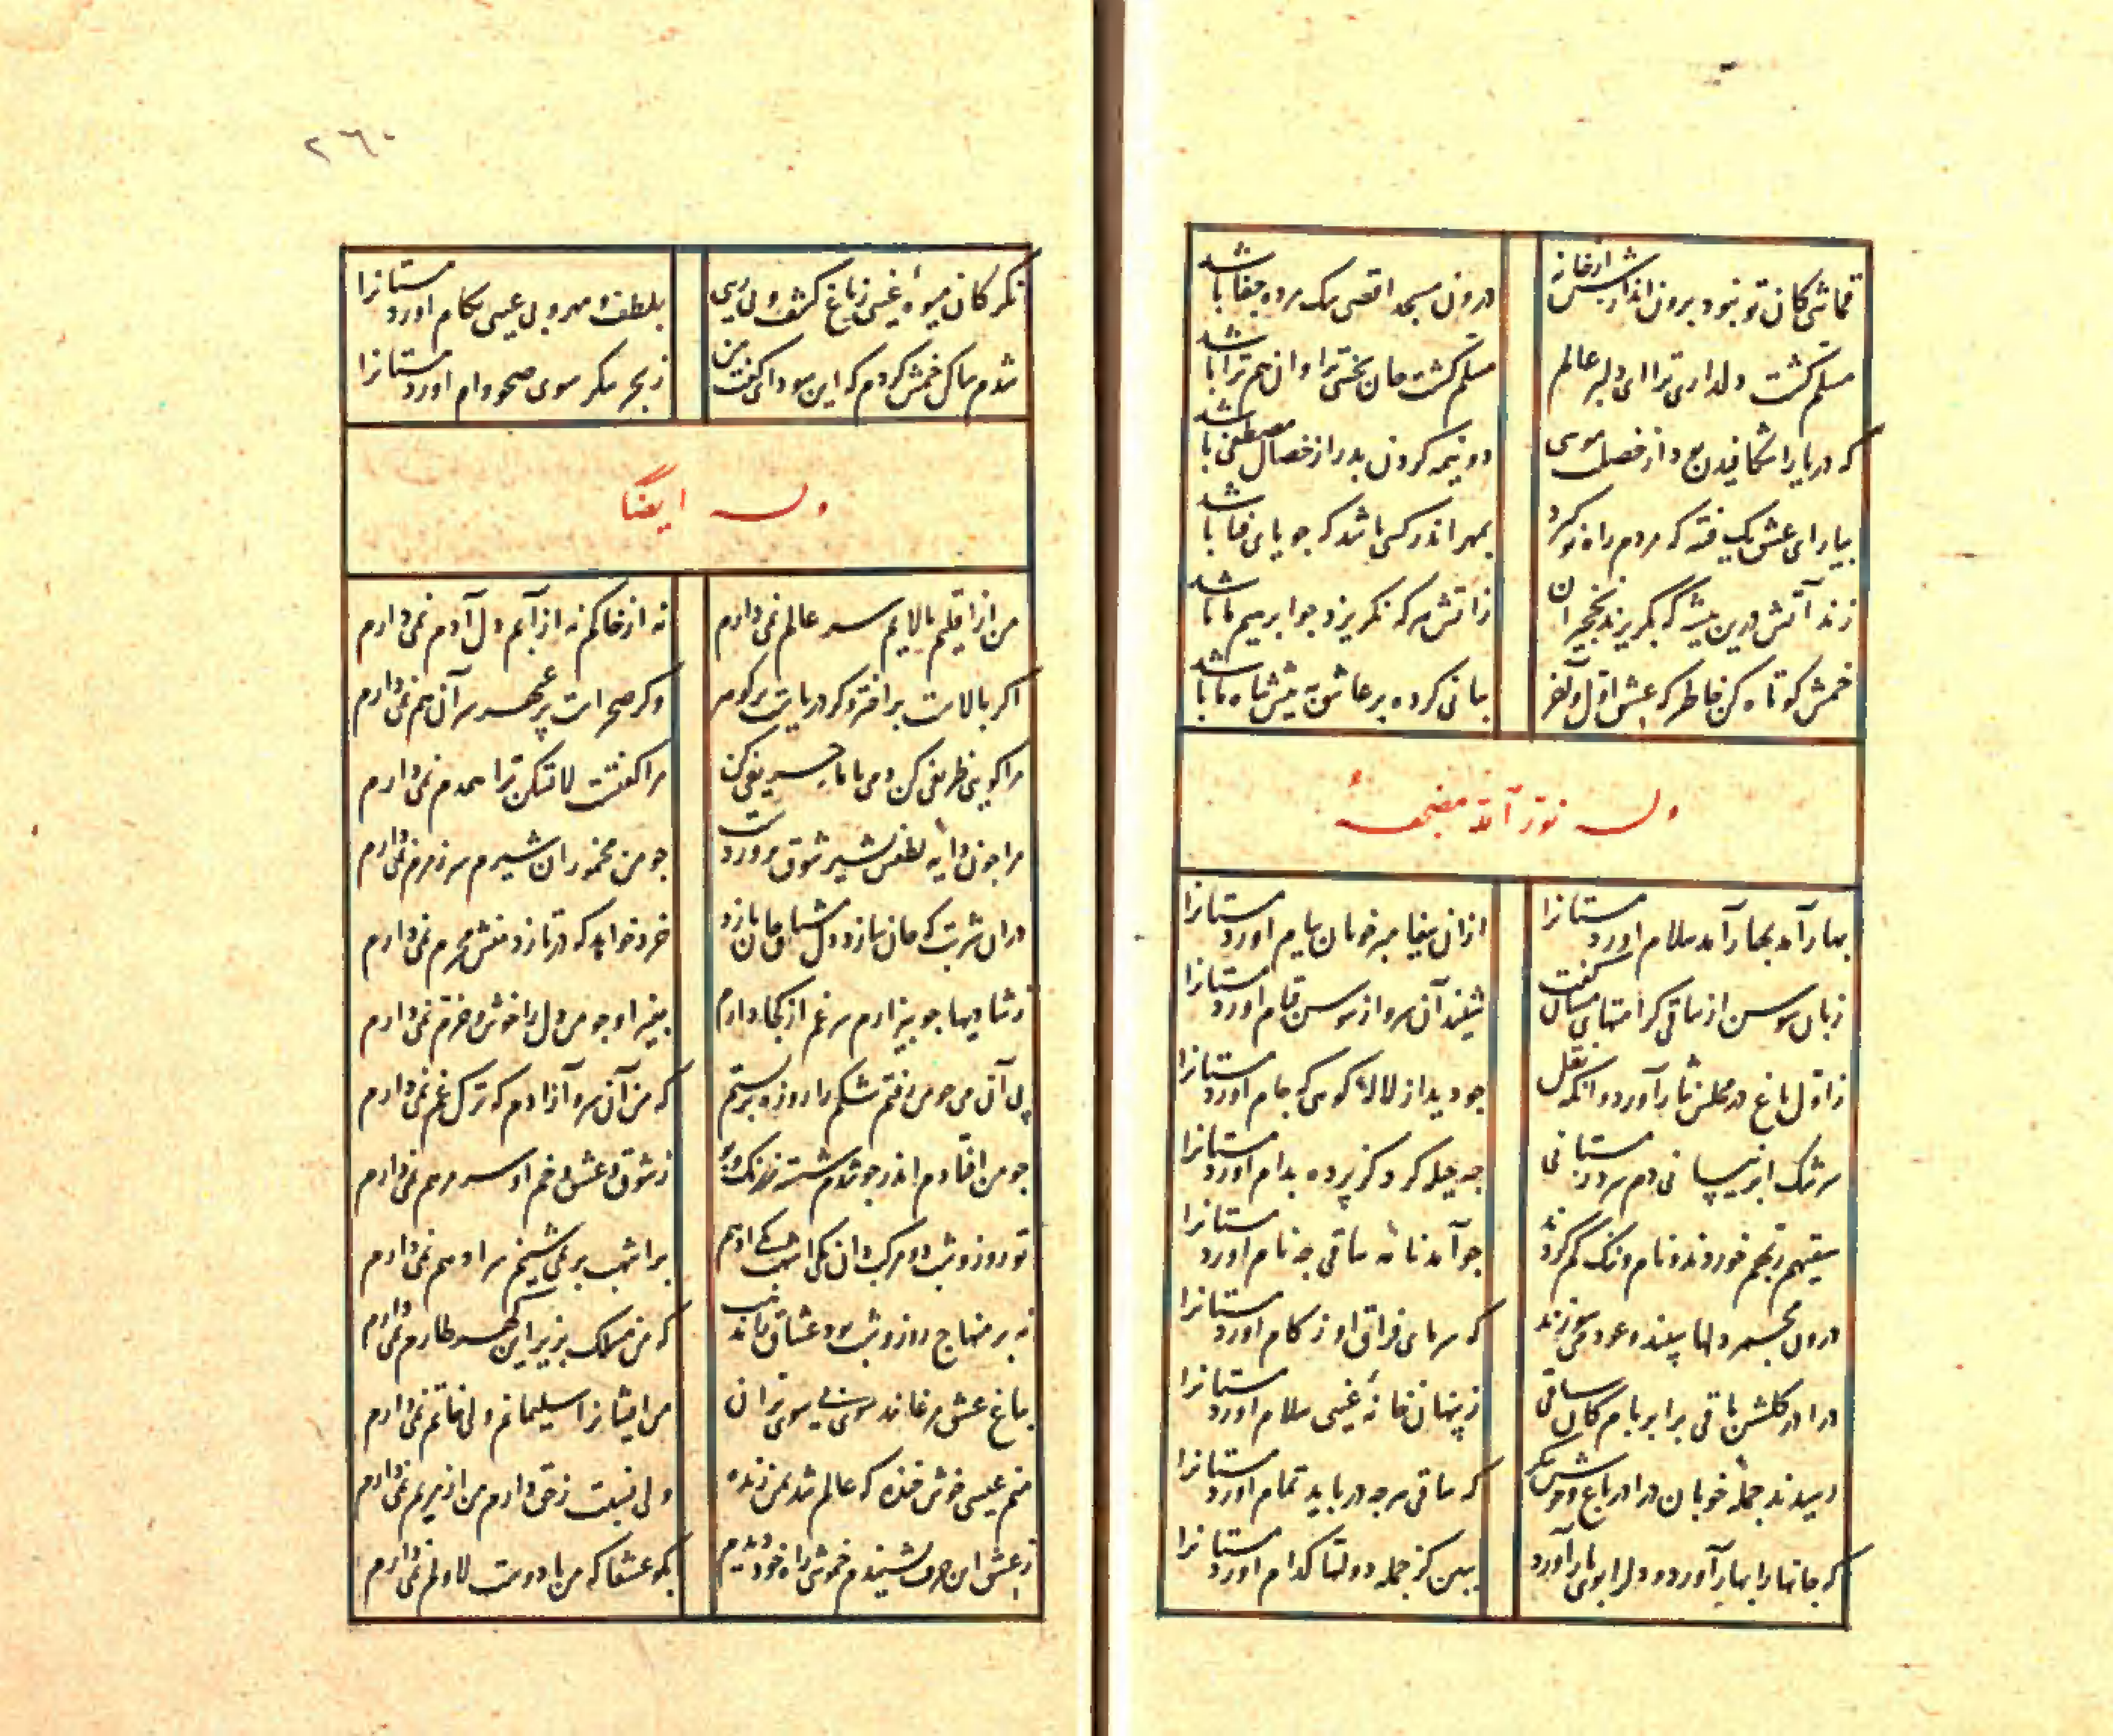 قماشی کان تو نبود برون انداز از خانه
درون مسجد اقصی سک مرده جفا باشد
مسلم کشت دلداری ترا ای دلبر عالم
مسلم کشت جان بخشی ترا وان هم ترا باشد
که دریا را شکافیدن بود از خصلت موسی
دو نیمه کردن بدر از خصال مصطفی باشد
بیار ای عشق یک فتنه که مردم راه نو کیرد
بمهر اندر کسی باشد که جویای فنا باشد
زند آتش درین بیشه که بکریزند نخجیران
ز اتش هر که نکریزد جو ابرهیم ما باشد
خمش کوتاه کن خاطر که عشق اول و آخر
بیانی کرده بر عاشق به پیش شاه ما باشد
وله نور الله مضجعه
بهار آمد بهار آمد سلام اورد مستانرا
ازان پیغامبر خوبان پیام اورد مستانرا
زبان سوسن از ساقی کرامتهای مستان کفت
شنید آن سرو از سوسن قیام اورد مستانرا
ز اول باغ در مجلس نثار آورد وانکه نقل
جو دید از لاله کوهی که جام اورد مستانرا
سرشک ابر نیسانی دم سرد زمستانی
جه حیله کرد کز پرده بدام اورد مستانرا
سقیهم ربهم خوردند و نام و ننک کم کردند
جو آمد نامه ساقی جه نام اورد مستانرا
درون مجمر دلها سپند و عود می سوزند
که سرمای فراق او زکام اورد مستانرا
درا در کلشن باقی برا بر بام کان ساقی
ز پنهان خانه غیبی سلام اورد مستانرا
رسیدند جمله خوبان درا در باغ
که ساقی هر جه درباید تمام اورد مستانرا
که جانها را بهار آورد و دل را بوی یار آورد
ببین کز جمله دولتها کدام اورد مستانرا
٢٦٠
نکر کان میوه غیبی ز باغ کشف و
بلطف و مهر و بی عیبی بکام اورد مستانرا
شدم ساکن خمش کردم که این سودای کفت من
ز بحر سکر سوی صحو وام اورد مستانرا
وله ایضا
من از اقلیم بالایم سر عالم نمی دارم
نه از خاکم نه از آبم دل آدم نمی دارم
اکر بالاست پر اختر وکر دریاست پر کوهر
وکر صحراست پر عبهر سر آن هم نمی دارم
مرا کویی ظریفی کن دمی با ما حریفی کن
مرا کفتست لا تسکن ترا همدم نمی دارم
مرا جون دایه لطفش بشیر شوق پرورد ست
جو من مخمور ان شیرم سر زمزم نمی دارم
دران شربت که جان سازد دل مشتاق جان بازد
خرد خواهد که درتازد منش محرم نمی دارم
ز شادیها جو بیزارم سر غم از کجا دارم
بغیر او جو من دل را خوش و خرم نمی دارم
پی آن می جو می رفتم شکم را روزه بربستم
که من آن سرو آزادم که ترک غم نمی دارم
جو من افتادم اندر جو شدم شسته ز رنک و بو
ز شوق و عشق و زخم او سر مرهم نمی دارم
تو روز و شب دو مرکب دان یکی اشهب یکی ادهم
بر اشهب بر نمی شینم سر ادهم نمی دارم
نه بر منهاج روز و شب بود عشاق را مذهب
که من مسلک بزیر این کهر طارم نمی دارم
بباغ عشق مرغانند سوی بی سوی پران
من ایشانرا سلیمانم ولی خاتم نمی دارم
منم عیسی خوش خنده که عالم شد بمن زنده
ولی نسبت ز حق دارم من از مریم نمی دارم
ز عشق این حرف بشنیدم خموشی راه خود دیدم
بکو عشقا که من با دوست لا و لم نمی دارم